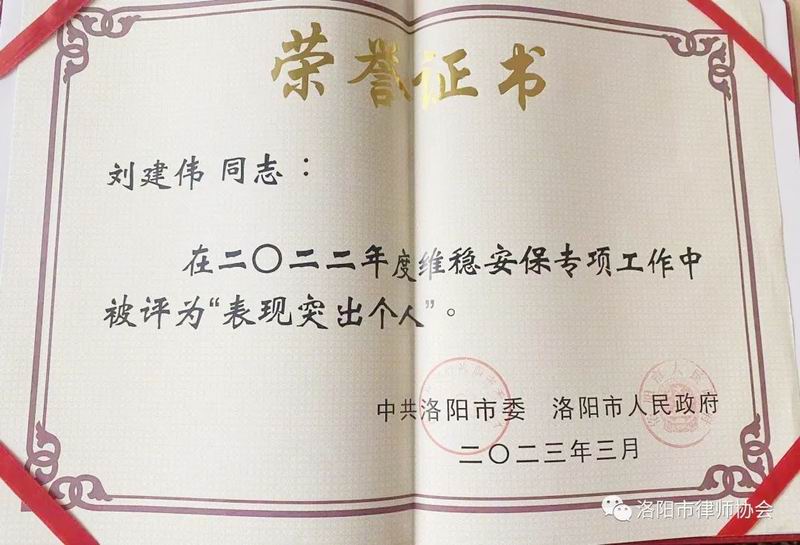 荣誉证书
刘建伟 同志：
在二〇二二年度维稳安保专项工作中
被评为“表现突出个人”。
中共洛阳市委 洛阳市人民政府
二〇二三年三月
洛阳市律师协会